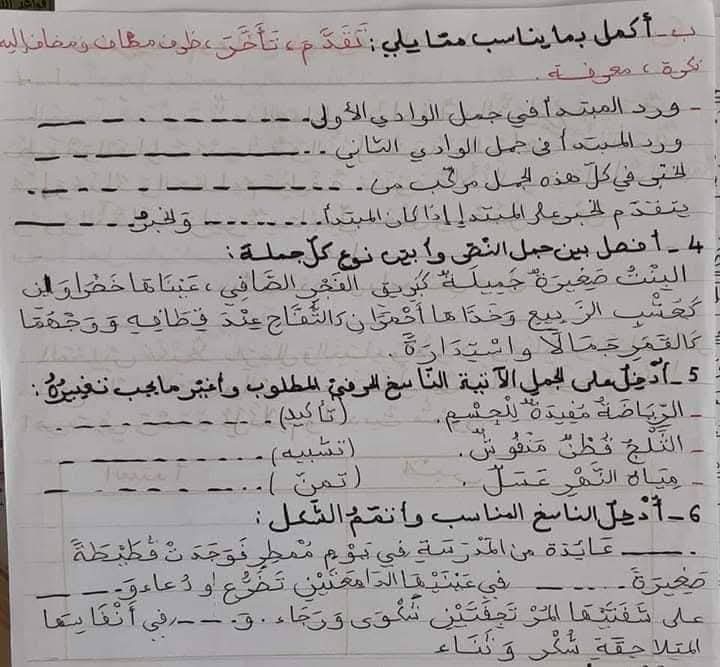 ب - أكمل بما يناسب ممّا يلي: تَقَدَّمَ، تَأَخَّرَ، ظرف مضاف ومضاف إليه
نكرة، معرفة.
- ورد المبتدأ في جمل الوادي الأولى
ورد المبتدأ في جمل الوادي الثاني
الخبر في كلّ هذه الجمل مركّب من
يتقدّم الخبر على المبتدإ إذا كان المبتدأ والخبرُ
4 - أفصل بين جمل النصّ وأبيّن نوع كلّ جملة:
البِنْتُ صَغِيرَةٌ جَمِيلَةٌ كَبَرِيقِ الفَجْرِ الصَّافِي، عَيْنَاهَا خَضْرَاوَانِ
كَعُشْبِ الرَّبِيعِ وَخَدَّاهَا أَحْمَرَانِ كَالتُّفَّاحِ عِنْدَ قِطَافِهِ وَوَجْهُهَا
كَالقَمَرِ جَمَالًا وَاسْتِدَارَةً.
5 - أُدْخِلُ على الجمل الآتية النّاسخ الحرفيّ المطلوب وأغيّر ما يجب تغييرُهُ:
- الرِّيَاضَةُ مُفِيدَةٌ لِلْجِسْمِ. (تأكيد)
- الثَّلْجُ قُطْنٌ مَنْفُوشٌ. (تشبيه)
- مِيَاهُ النَّهْرِ عَسَلٌ. (تمنّ)
6 - أُدْخِلُ الناسخ المناسب وأتمّمُ الشّكل:
عَائِدَة من المَدْرَسَةِ في يَوْمٍ مُمْطِرٍ فَوَجَدَتْ قُطَيْطَةً
صَغِيرَةً في عَيْنَيْهَا الدَّامِعَتَيْنِ تَضَرُّع وَدُعَاء وَ
على شَفَتَيْهَا المُرْتَجِفَتَيْنِ شَكْوَى وَرَجَاء. وَ في أَنْفَاسِهَا
المُتَلَاحِقَةِ شُكْر وَثَنَاء